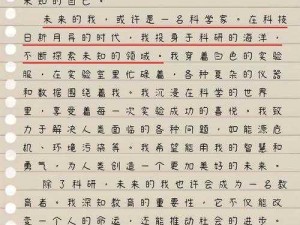 未知的自己。
未来的我，或许是一名科学家。在科技
日新月异的时代，我投身于科研的海洋，
不断探索未知的领域。我穿着白色的实验
服，在实验室里忙碌着，各种复杂的仪器
和数据围绕着我。我沉浸在科学的世界
里，享受着每一次实验成功的喜悦。我致
力于解决人类面临的各种问题，如能源危
机、环境污染等。我希望能用我的智慧和
勇气，为人类创造一个更加美好的未来。
除了科研，未来的我也许会成为一名教
育者。我深知教育的重要性，它不仅能改
变一个人的命运，还能推动社会的进步。